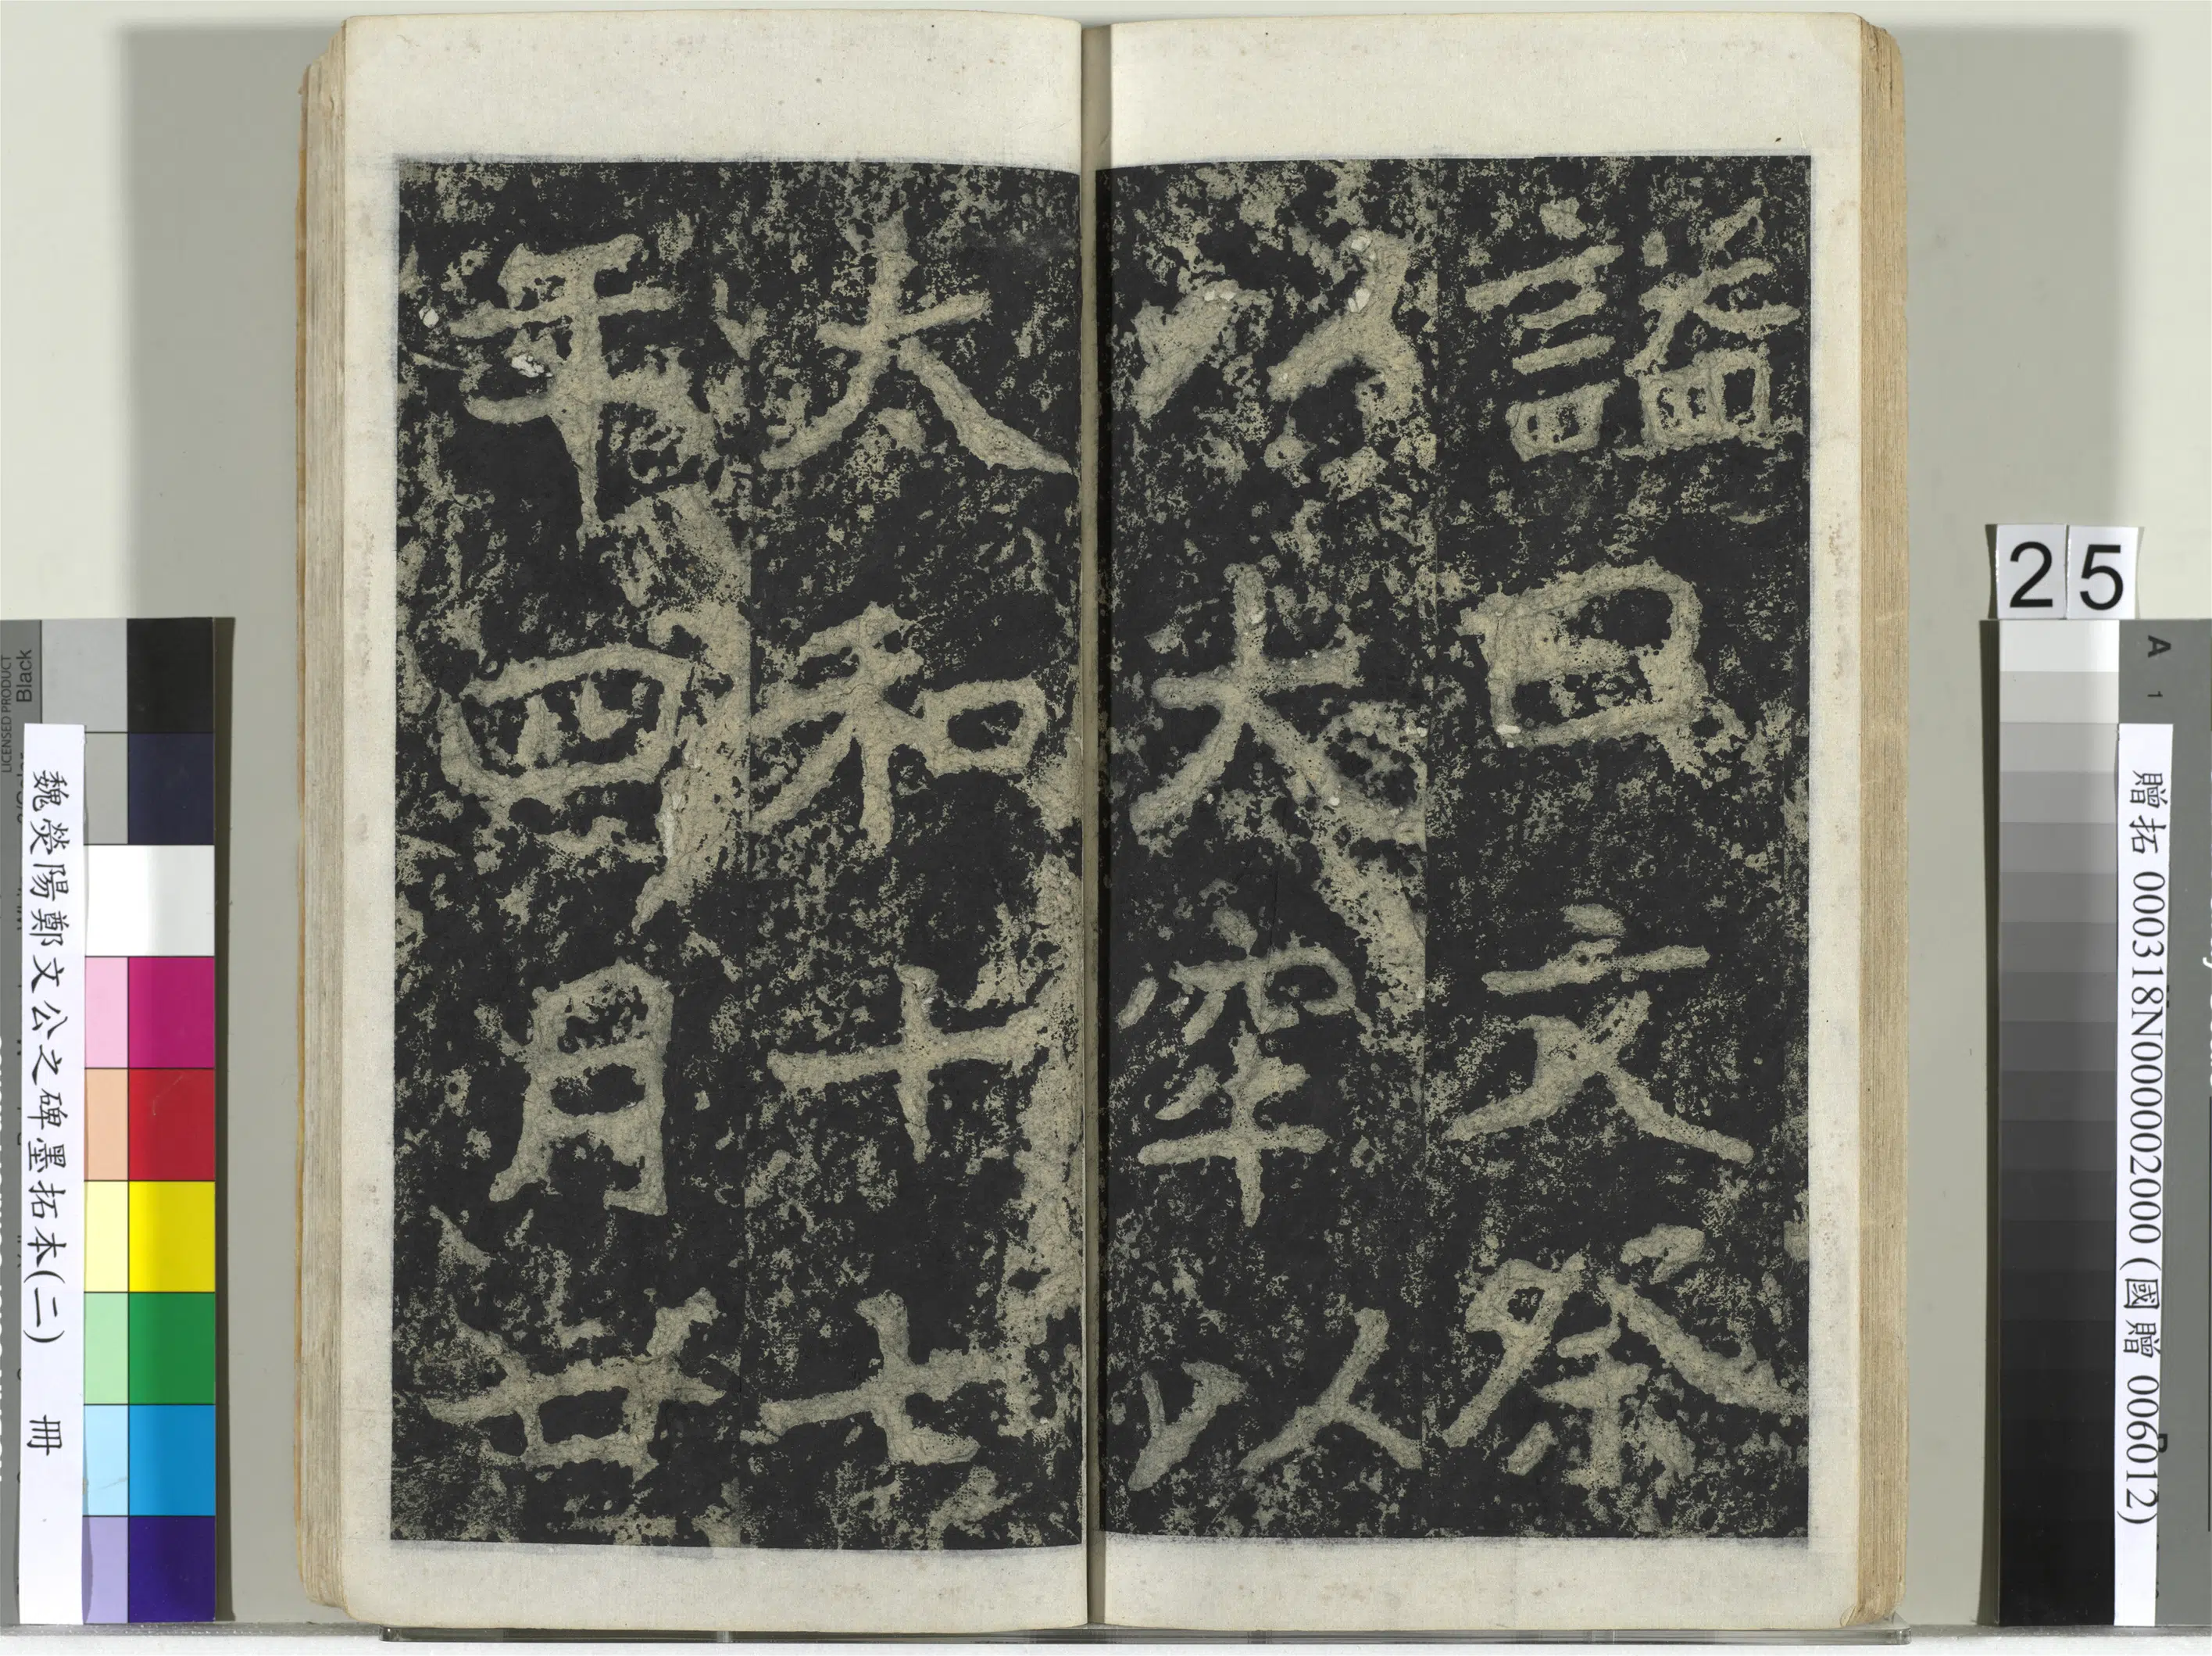 謚曰文祭
以太牢以
太和十七
年四月廿
25
A 1
贈拓 000318N000002000 (國贈 006012)
魏熒陽鄭文公之碑墨拓本(二) 冊
LICENSED PRODUCT
Black